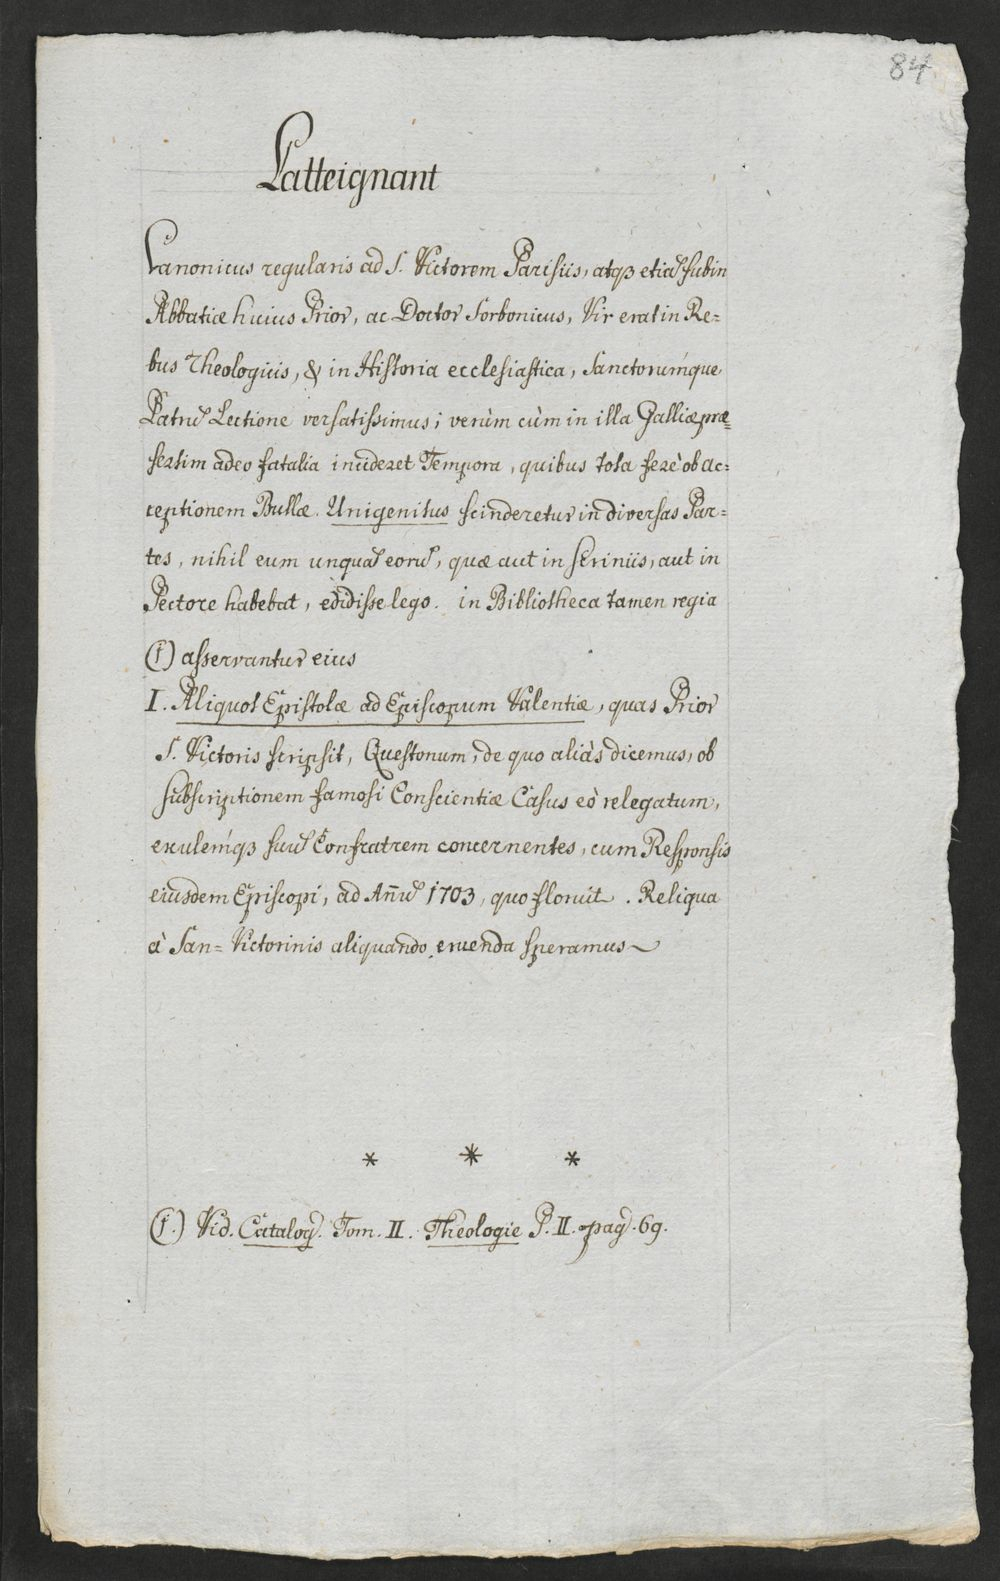 84
Latteignant
Canonicus regularis ad S. Victorem Parisiis, atqȝ etiã subin
Abbatiæ huius Prior, ac Doctor Sorbonicus, Vir erat in Re=
bus Theologicis, & in Historia ecclesiastica, Sanctorumque
Patrũ Lectione versatissimus; verùm cùm in illa Galliæ præ=
sertim adeo fatalia incideret Tempora, quibus tota ferè ob ac=
ceptionem Bullæ Unigenitus scinderetur in diversas Par=
tes, nihil eum unquã eorũ, quæ aut in Scriniis, aut in
Pectore habebat, edidisse lego. in Bibliotheca tamen regia
(1) asservantur eius
I. Aliquot Epistolæ ad Episcopum Valentiæ, quas Prior
S. Victoris scripsit, Quesfonum, de quo aliàs dicemus, ob
subscriptionem famosi Conscientiæ Casus eò relegatum,
exulemqȝ suũ Confratrem concernentes, cum Responsis
eiusdem Episcopi, ad Añũ 1703, quo floruit. Reliqua
à San=Victorinis aliquando eruenda speramus~
* * *
(1.) Vid. Catalog. Tom. II. Theologie P. II. pag. 69.